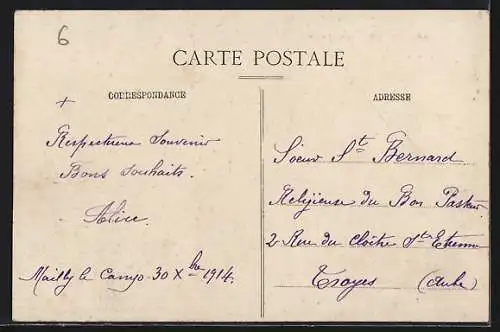 6
CARTE POSTALE
CORRESPONDANCE
+
Respectueux Souvenir
Bons souhaits.
Alice.
Mailly le Camp 30 Xbre 1914.
ADRESSE
Soeur St Bernard
Religieuse du Bon Pasteur
2 Rue du Cloître St Etienne
Troyes (Aube)